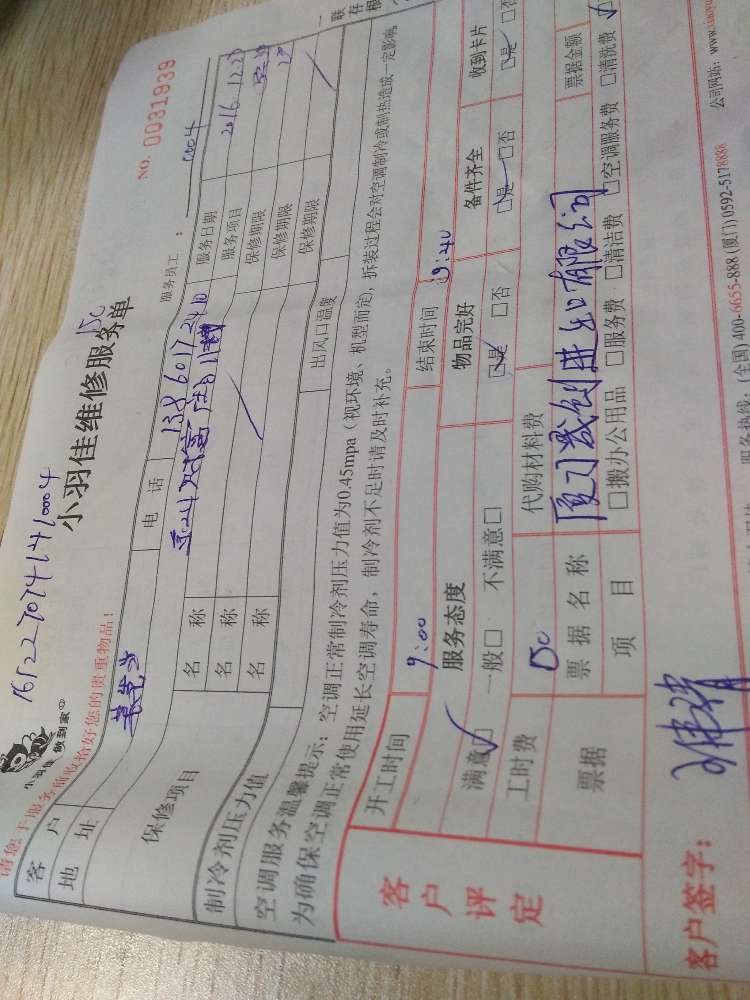 161227074141 0004
小羽佳 做到家
小羽佳维修服务单
150
NO. 0031939
请您于服务前收拾好您的贵重物品！
服务员工： 0004
客户
电话
地址
服务日期 2016.12.27
保修项目
名称
服务项目
名称
保修期限
名称
保修期限
保修期限
制冷剂压力值
出风口温度
空调服务温馨提示：空调正常制冷剂压力值为0.45mpa（视环境、机型而定），拆装过程会对空调制冷或制热造成一定影响，
为确保空调正常使用延长空调寿命，制冷剂不足时请及时补充。
客户评定
开工时间 9:00 结束时间
服务态度 物品完好 备件齐全 收到卡片
满意□ 一般□ 不满意□ □是 □否 □是 □否 □是 □否
工时费 150 代购材料费 票据金额
票据 票据名称
项目 □搬办公用品 □服务费 □清洁费 □空调服务费 □清洗费
客户签字：
服务热线：(全国)400-6655-888 (厦门)0592-5178888 公司网站：www.xiaoyu